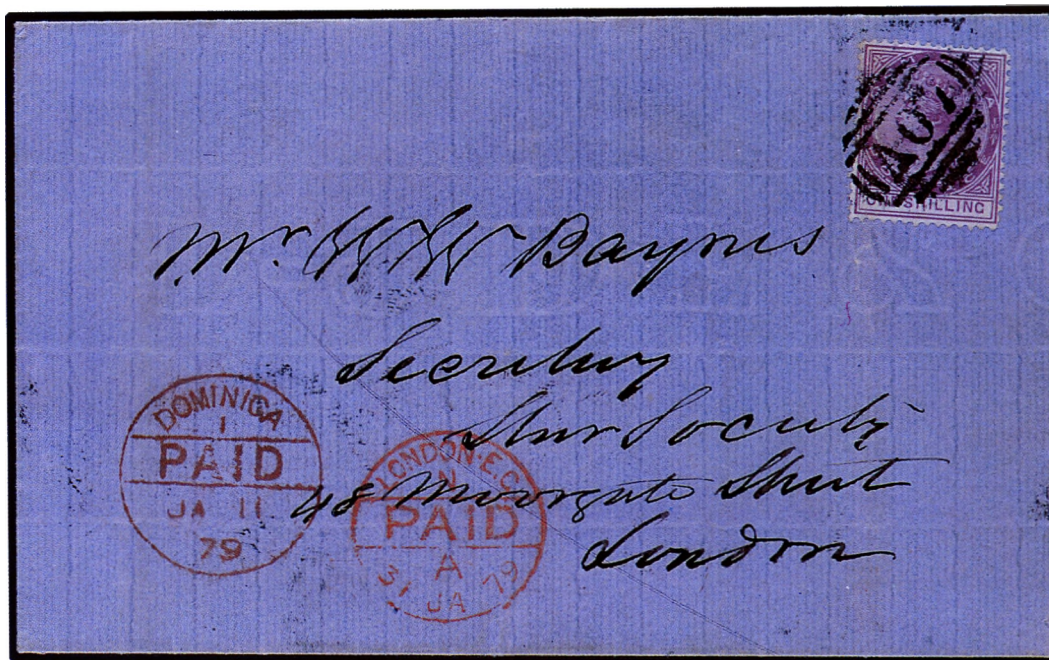 A07
ONE SHILLING
Mr. W W Baynes
Secretary
Star Society
48 Moorgate Street
London
DOMINICA
1
PAID
JA 11
79
LONDON·E.C.
N
PAID
A
31 JA 79